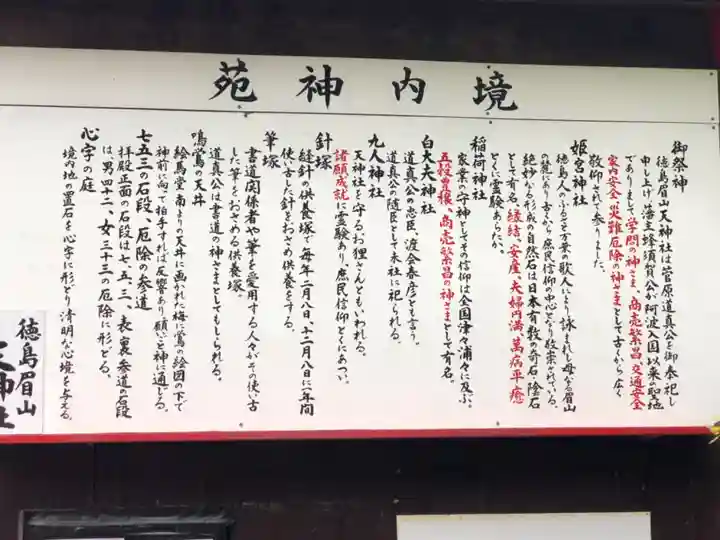 境内神苑
御祭神
徳島眉山天神社は菅原道真公を御奉祀し
申し上げ、藩主蜂須賀公が阿波入国以来の聖地
でありまして学問の神さま、商売繁昌、交通安全
家内安全、災難厄除の神さまとして古くから広く
敬仰されて参りました。
姫宮神社
徳島人のふるさと万葉の歌人により詠まれし母なる眉山
の麓にあり古くから庶民信仰の中心となり敬崇されている。
絶妙なる形成の自然石は日本有数の奇石陰石
として有名、縁結、安産、夫婦円満、萬病平癒
とくに霊験あらたか。
稲荷神社
家業の守神としてその信仰は全国津々浦々に及ぶ。
五穀豊穣、商売繁昌の神さまとして有名。
白大夫神社
道真公の忠臣、渡会春彦とも言う。
道真公の随臣として末社に祀られる。
九人神社
天神社を守るお狸さんともいわれる。
諸願成就に霊験あり、庶民信仰とくにあつい。
針塚
縫針の供養塚で毎年二月八日、十二月八日に一年間
使い古した針をおさめ供養をする。
筆塚
書道関係者や筆を愛用する人々がその使い古
した筆をおさめる供養塚。
道真公は書道の神さまとしてもしられる。
鳴鶯の天井
絵馬堂南よりの天井に画かれた梅に鶯の絵図の下で
神前に向って拍手すれば反響あり願いど神に通じる。
七五三の石段、厄除の参道
拝殿正面の石段は七、五、三、表、裏参道の石段
は男四十二、女三十三の厄除に形どる。
心字の庭
境内地の置石を心字に形どり清明な心境を与える。
徳島眉山
天神社